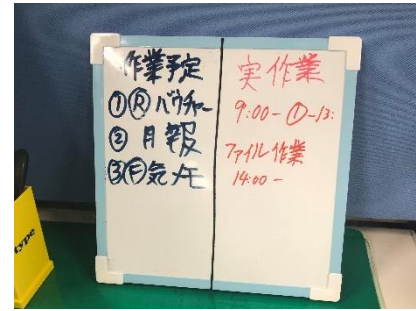 作業予定
①Ⓡバウチャー
②月報
③Ⓕ気メモ
実作業
9:00-①-13:
ファイル作業
14:00-
type